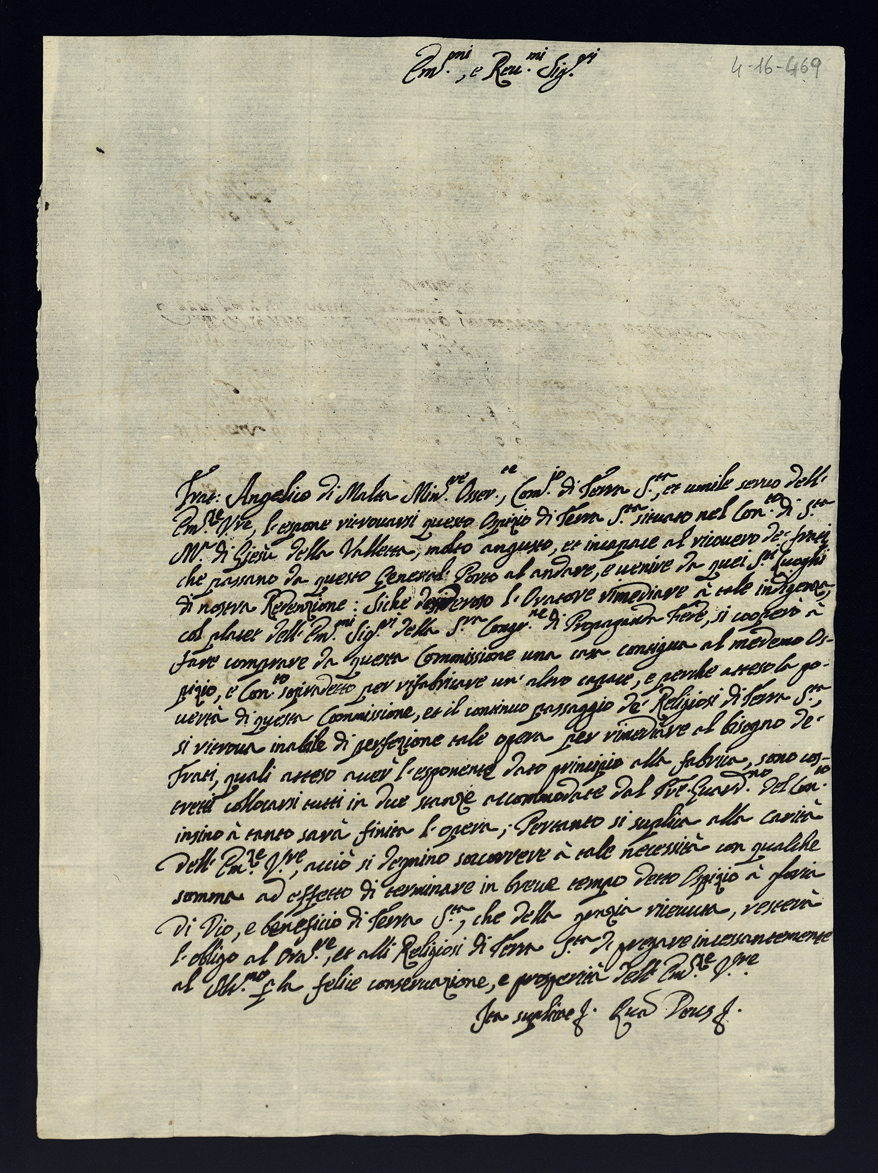 Em.mi, e Reu.mi Sig.ri
4-16-469
Frat: Angelico di Malta Min.re Osser.te, Com.rio di Terra S.ta, et umile seruo dell'
Em.ze V.re, l'espone ritrouarsi questo Ospizio di Terra S.ta situato nel Con.to di S.ta
M.a di Giesù della Valletta, molto angusto, et incapace al ricouero de' frati
che passano da questo General Porto al andare, e uenire da quei S.ti Luoghi
di nostra Redenzione: Siche desideroso l'Oratore rimediare à tale indigenza,
col placet dell'Em.mi Sig.ri della S.ta Congr.ne di Propaganda Fide, si cooperò à
fare comprare da questa Commissione una casa contigua al medemo Os-
pizio, e Con.to sopradetto per rifabricare un'altro capace, e perche atteso la po-
uertà di questa Commissione, et il continuo passaggio de' Religiosi di Terra S.ta,
si ritroua inabile di perfezione tale opera per rimediare al bisogno de'
Frati, quali atteso auer l'esponente dato principio alla fabrica, sono cos-
tretti collocarsi tutti in due stanze accommodate dal P.re Guard.no del Con.to
insino à tanto sarà finita l'opera; Pertanto si suplica alla carità
dell'Em.ze V.re, acciò si degnino soccorrere à tale necessità con qualche
somma ad effetto di terminare in breue tempo detto Ospizio à gloria
di Dio, e beneficio di Terra S.ta, che della grazia riceuuta, resterà
l'obligo al Ora.re, et alli Religiosi di Terra S.ta di pregare incessantemente
al Alt.mo p la felice conseruazione, e prosperità dell'Em.ze V.re
Ita suplicat &. Quā Deus &.